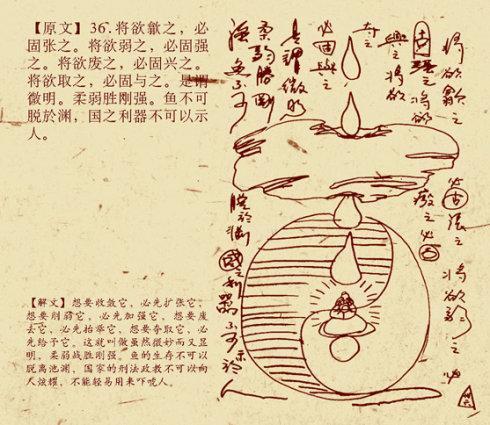 【原文】36.将欲歙之，必
固张之。将欲弱之，必固强
之。将欲废之，必固兴之。
将欲取之，必固与之。是谓
微明。柔弱胜刚强。鱼不可
脱於渊，国之利器不可以示
人。
将欲歙之
将欲
之将欲
必固與
是謂微明
柔弱勝剛
强魚不可
國之利器不可
示人
【解文】想要收敛它，必先扩张它，
想要削弱它，必先加强它，想要废
去它，必先抬举它，想要夺取它，必
先给予它。这就叫做虽然微妙而又显
明，柔弱战胜刚强。鱼的生存不可以
脱离池渊，国家的刑法政教不可以向
人炫耀，不能轻易用来吓唬人。